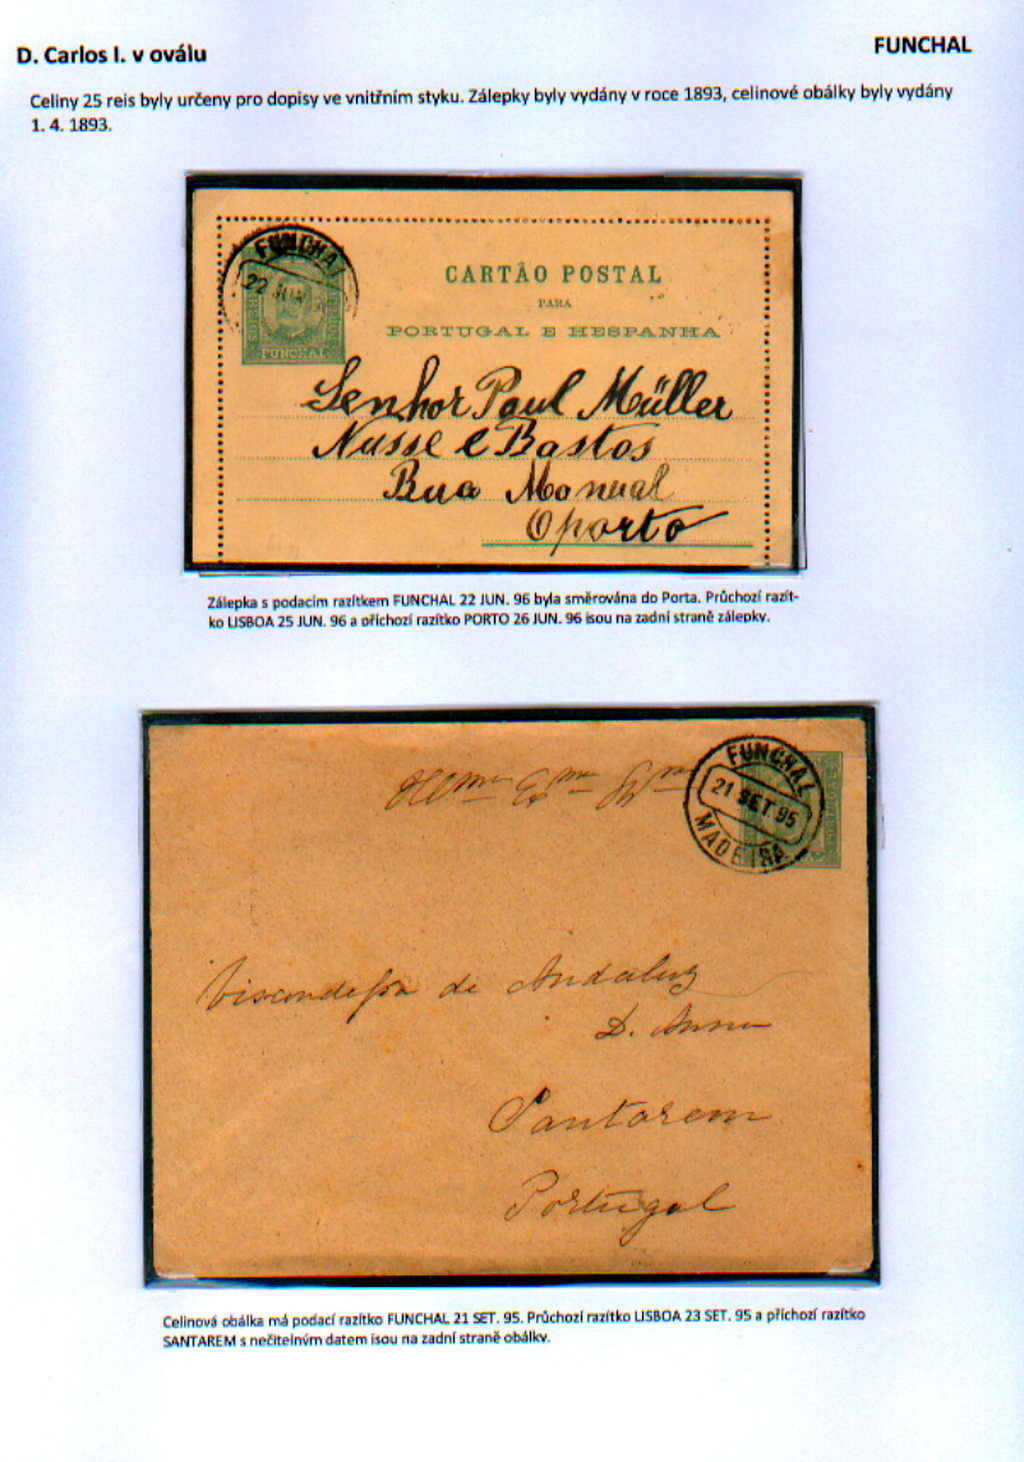 D. Carlos I. v oválu
FUNCHAL
Celiny 25 reis byly určeny pro dopisy ve vnitřním styku. Zálepky byly vydány v roce 1893, celinové obálky byly vydány
1. 4. 1893.
FUNCHAL
22 JUN
FUNCHAL
CARTÃO POSTAL
PARA
PORTUGAL E HESPANHA
Senhor Paul Müller
Nusse e Bastos
Rua Manual
Oporto
Zálepka s podacím razítkem FUNCHAL 22 JUN. 96 byla směrována do Porta. Průchozí razít-
ko LISBOA 25 JUN. 96 a příchozí razítko PORTO 26 JUN. 96 jsou na zadní straně zálepky.
Illma Exma Snra
FUNCHAL
21 SET. 95
MADEIRA
PORTUGAL
Viscondessa de Andaluz
D. Anna
Santarem
Portugal
Celinová obálka má podací razítko FUNCHAL 21 SET. 95. Průchozí razítko LISBOA 23 SET. 95 a příchozí razítko
SANTAREM s nečitelným datem jsou na zadní straně obálky.